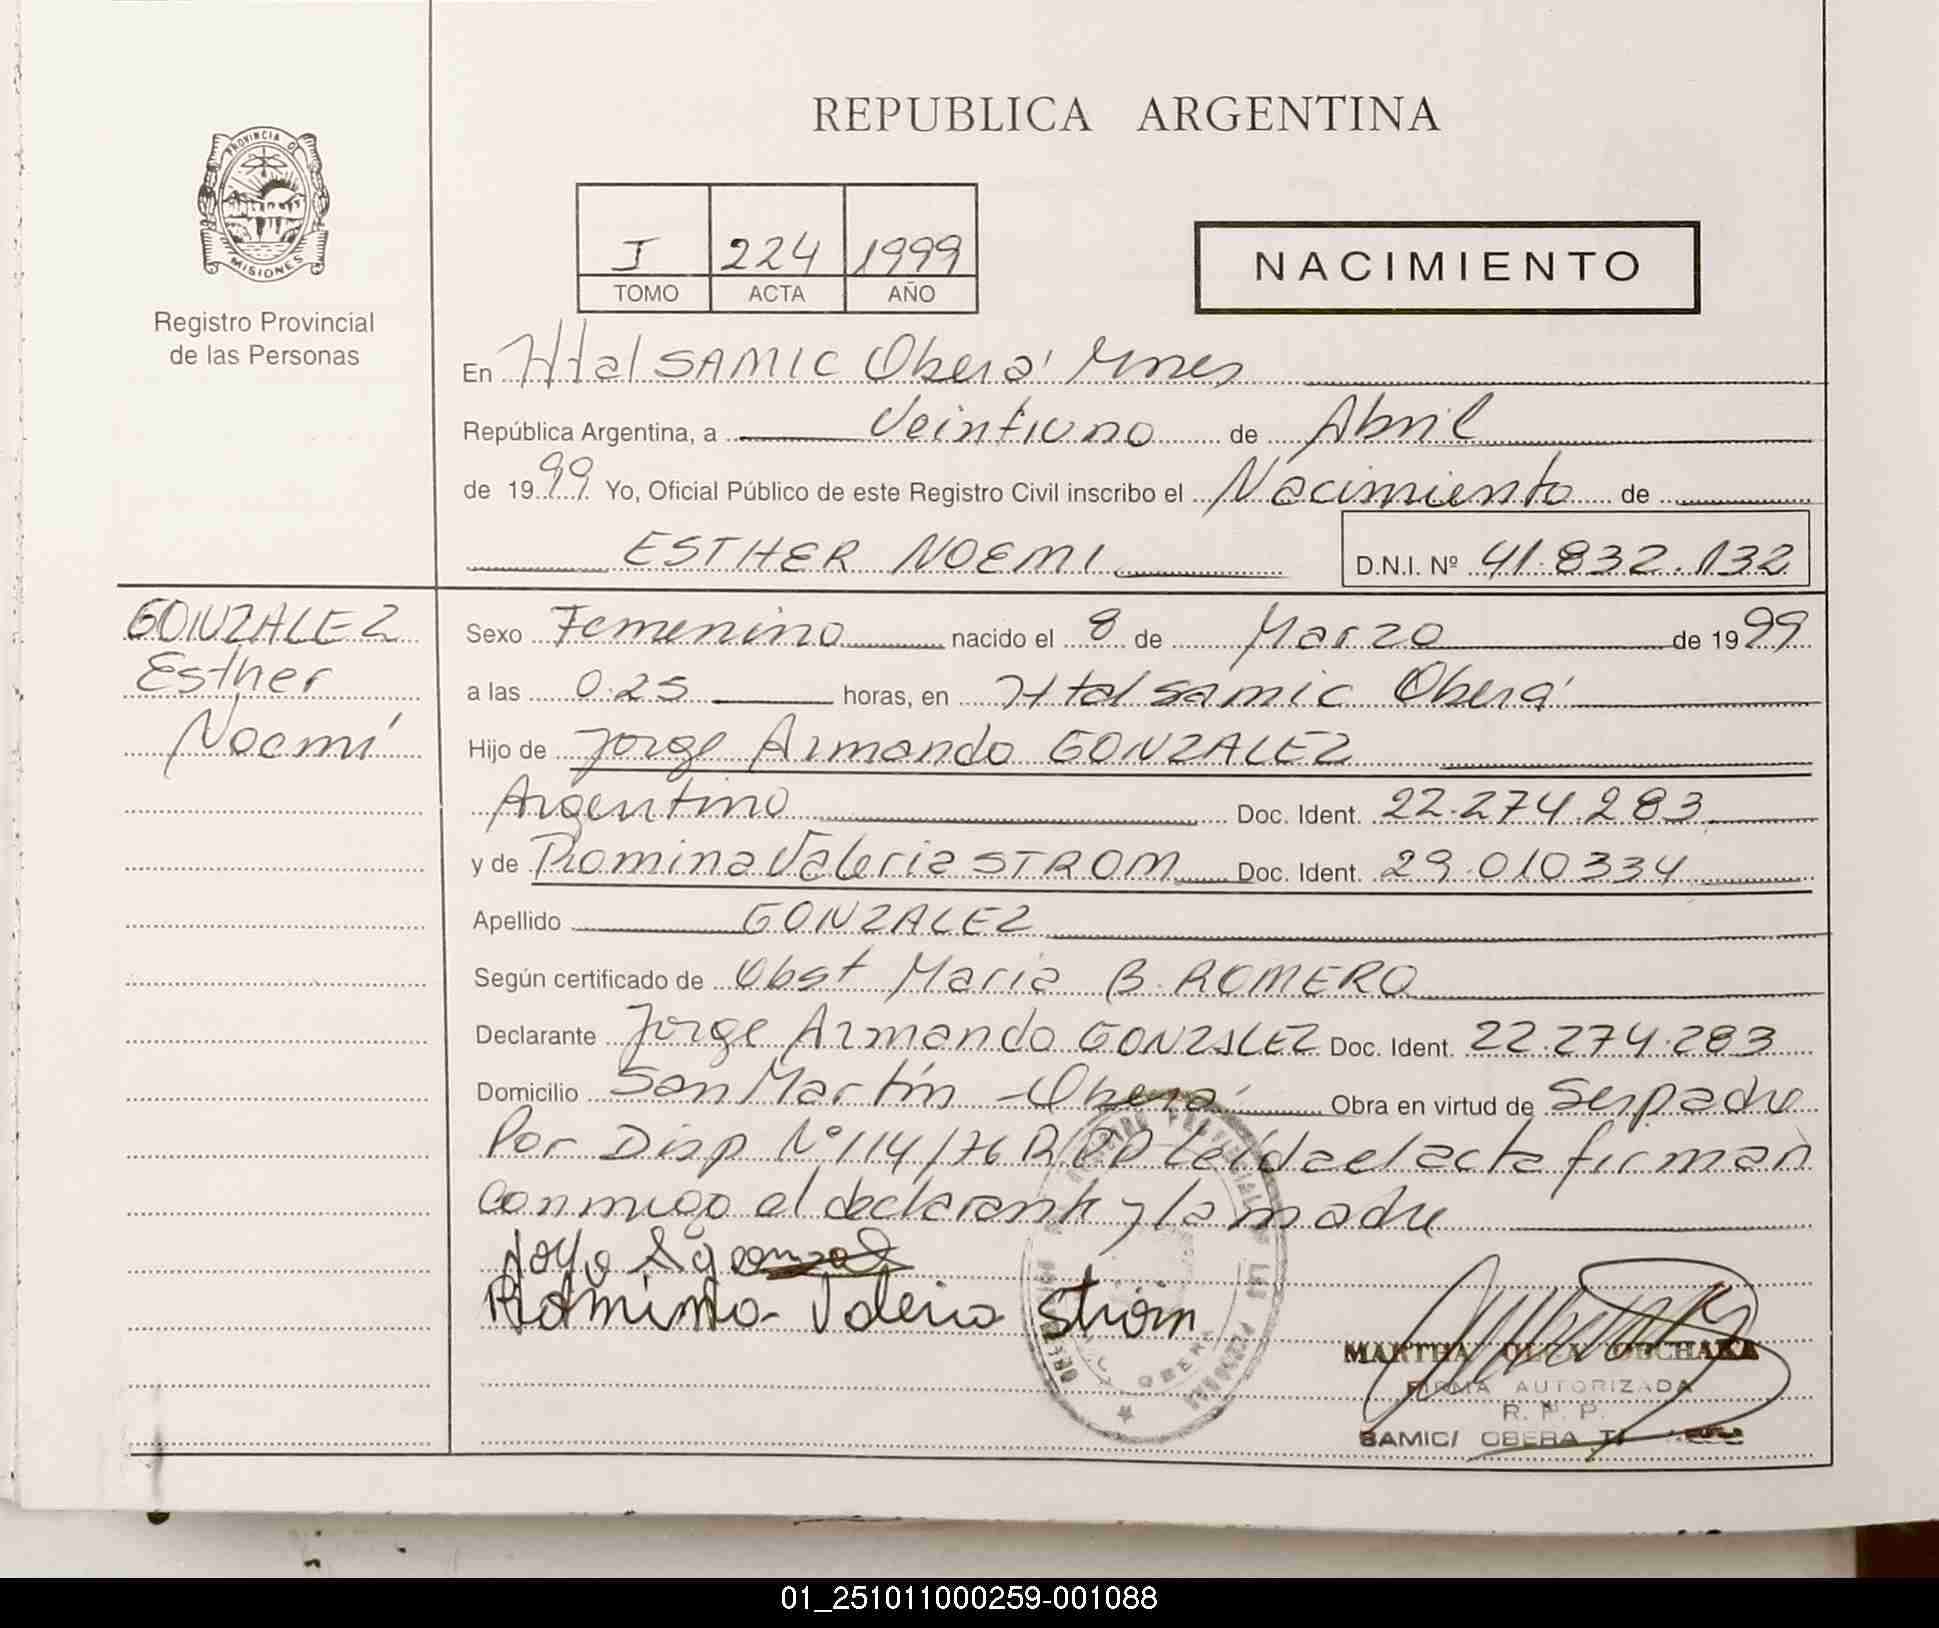 REPUBLICA ARGENTINA
PROVINCIA D
MISIONES
Registro Provincial
de las Personas
I 224 1999
TOMO ACTA AÑO
NACIMIENTO
En Htal SAMIC Oberá Mnes
República Argentina, a Veintiuno de Abril
de 1999 Yo, Oficial Público de este Registro Civil inscribo el Nacimiento de
ESTHER NOEMI D.N.I. Nº 41.832.132
GONZALEZ
Esther
Noemí
Sexo Femenino nacido el 8 de Marzo de 1999
a las 0:25 horas, en Htal samic Oberá
Hijo de Jorge Armando GONZALEZ
Argentino Doc. Ident. 22.274.283
y de Romina Valeria STROM Doc. Ident. 29.010334
Apellido GONZALEZ
Según certificado de Obst Maria B. ROMERO
Declarante Jorge Armando GONZALEZ Doc. Ident. 22.274.283
Domicilio San Martín - Oberá Obra en virtud de Ser padre
Por Disp Nº 114/76 RPP Leída el acta firman
conmigo el declarante y la madre
Romina Valeria Strom
MARTHA OLGA
FIRMA AUTORIZADA
R. P. P.
SAMIC/ OBERA
OBERA
01_251011000259-001088